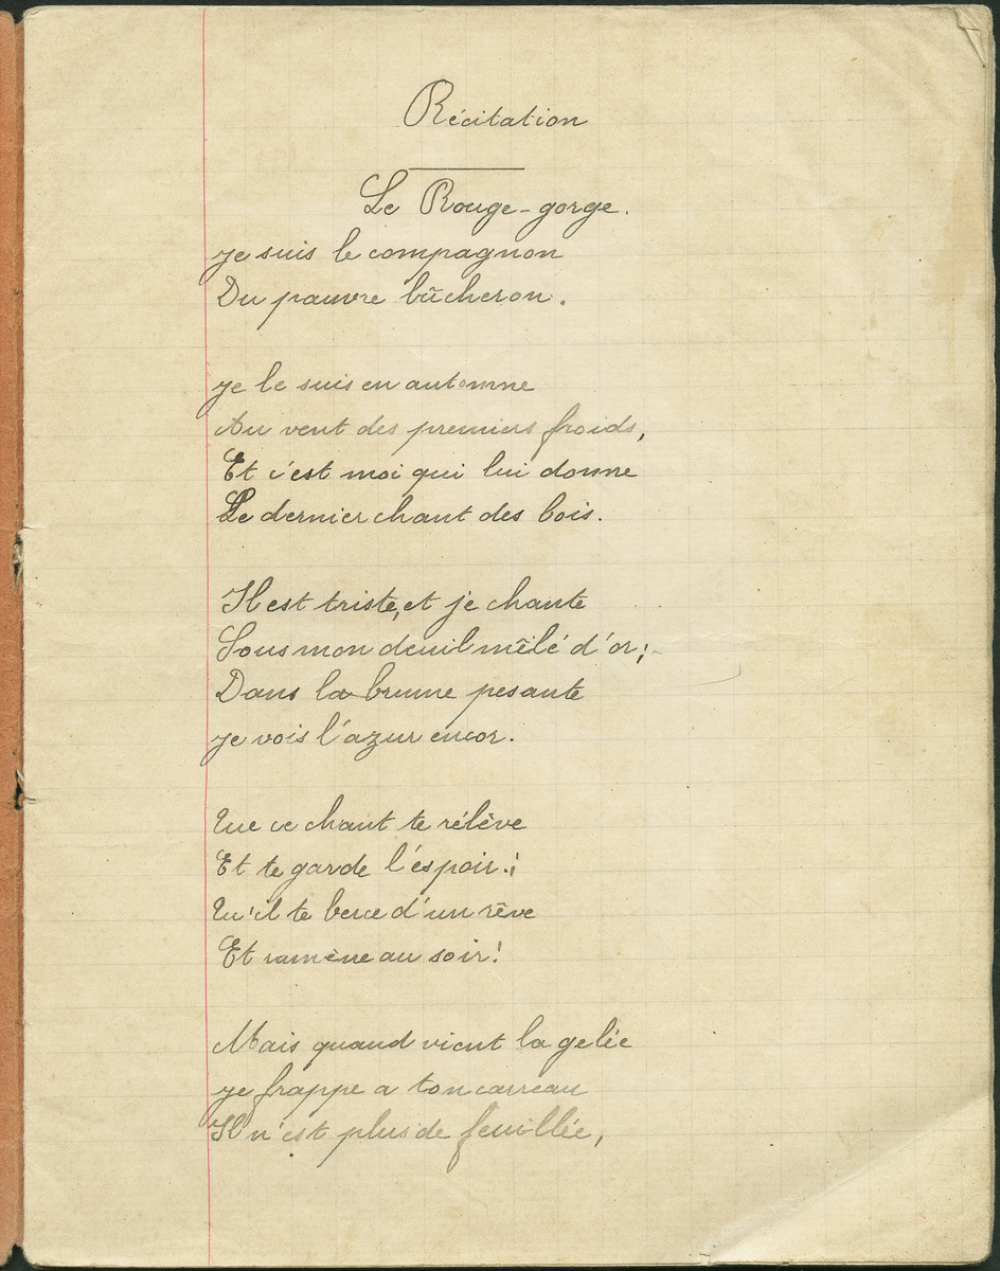 Récitation
Le Rouge-gorge.
je suis le compagnon
Du pauvre bûcheron.
je le suis en automne
Au vent des premiers froids,
Et c'est moi qui lui donne
Le dernier chant des bois.
Il est triste, et je chante
Sous mon deuil mêlé d'or;
Dans la brume pesante
je vois l'azur encor.
Que ce chant te rélève
Et te garde l'éspoir.!
Qu'il te berce d'un rêve
Et ramène au soir!
Mais quand vient la gelée
je frappe a ton carreau
Il n'est plus de feuillée,